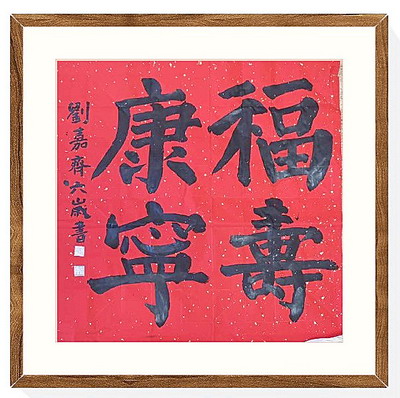 福壽
康寧
劉嘉齊六歲書